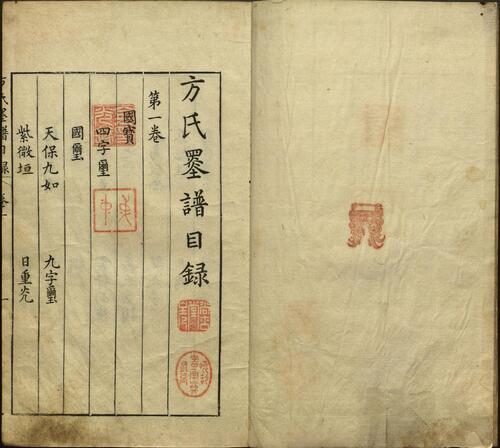 方氏墨譜目録
第一卷
國寶
四字璽
國璽
天保九如 九字璽
紫微垣 日重光
方氏墨譜目録 卷一 一